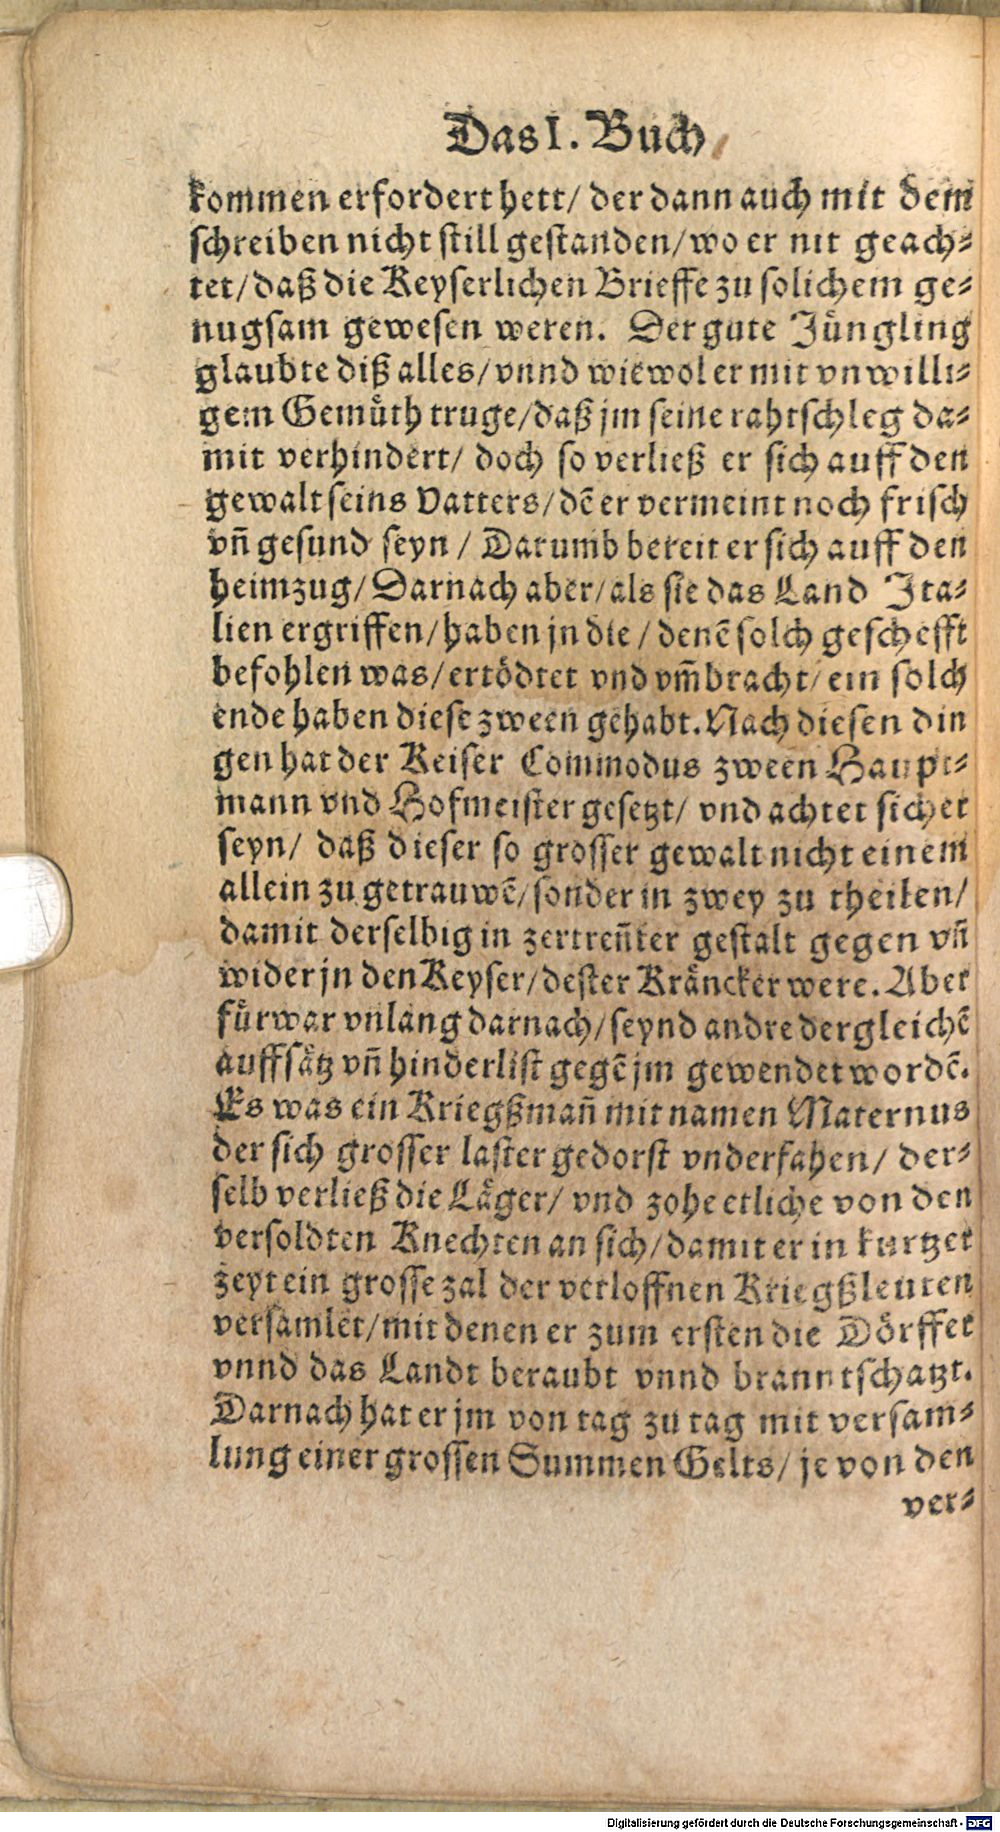 Das I. Buch
kommen erfordert hett/ der dann auch mit dem
schreiben nicht still gestanden/ wo er nit geach-
tet/ daß die Keyserlichen Brieffe zu solichem ge-
nugsam gewesen weren. Der gute Jüngling
glaubte diß alles/ vnnd wiewol er mit vnwilli-
gem Gemüth truge/ daß jm seine rahtschleg da-
mit verhindert/ doch so verließ er sich auff den
gewalt seins Vatters/ dẽ er vermeint noch frisch
vñ gesund seyn / Darumb bereit er sich auff den
heimzug/ Darnach aber/ als sie das Land Ita-
lien ergriffen/ haben jn die / denẽ solch geschefft
befohlen was/ ertödtet vnd vm̃bracht/ ein solch
ende haben diese zween gehabt. Nach diesen din
gen hat der Keiser Commodus zween Haupt-
mann vnd Hofmeister gesetzt/ vnd achtet sicher
seyn/ daß dieser so grosser gewalt nicht einem
allein zu getrauwẽ/ sonder in zwey zu theilen/
damit derselbig in zertreñter gestalt gegen vñ
wider jn den Keyser/ dester Kräncker were. Aber
fürwar vnlang darnach/ seynd andre dergleichẽ
auffsätz vñ hinderlist gegẽ jm gewendet wordẽ.
Es was ein Kriegßmañ mit namen Maternus
der sich grosser laster gedorst vnderfahen/ der-
selb verließ die Läger/ vnd zohe etliche von den
versoldten Knechten an sich/ damit er in kurtzer
zeyt ein grosse zal der verloffnen Kriegßleuten
versamlet/ mit denen er zum ersten die Dörffer
vnnd das Landt beraubt vnnd branntschatzt.
Darnach hat er jm von tag zu tag mit versam-
lung einer grossen Summen Gelts/ je von den
ver-
Digitalisierung gefördert durch die Deutsche Forschungsgemeinschaft - DFG